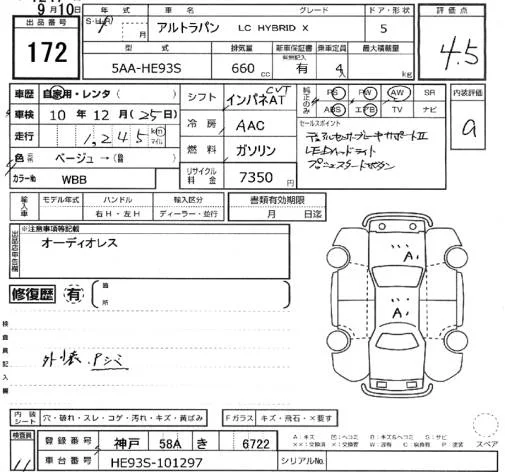 9月10日
出品番号
172
年式
S・H・R
7
月
車名
アルトラパン
グレード
LC HYBRID X
ドア・形状
5
評価点
4.5
型式
5AA-HE93S
排気量
660 cc
新車保証書
有
乗車定員
4人
最大積載量
kg
車歴 自家用・レンタ
車検 10年 12月(25日)
走行 1,245 km マイル
色 元色 ベージュ→(替 )
カラーNo WBB
シフト インパネAT CVT
冷房 AAC
燃料 ガソリン
リサイクル料金 7350 円
純正のみ
PS PW AW SR
ABS エアB TV ナビ
セールスポイント
デュアルセンサーブレーキサポートⅡ
LEDヘッドライト
プッシュスタートボタン
内装評価
a
輸入車
モデル年式
ハンドル
右H・左H
輸入区分
ディーラー・並行
書類有効期限
月 日迄
出品店申告欄
※注意事項等記載
オーディオレス
修復歴 有 箇所
検査員記入欄
外装 Pシミ
A
A
内装シート 穴・破れ・スレ・コゲ・汚れ・キズ・黄ばみ
Fガラス キズ・飛石・×要す
検査員
11
登録番号 神戸 58A き 6722
車台番号 HE93S-101297
シリアルNo.
スペア